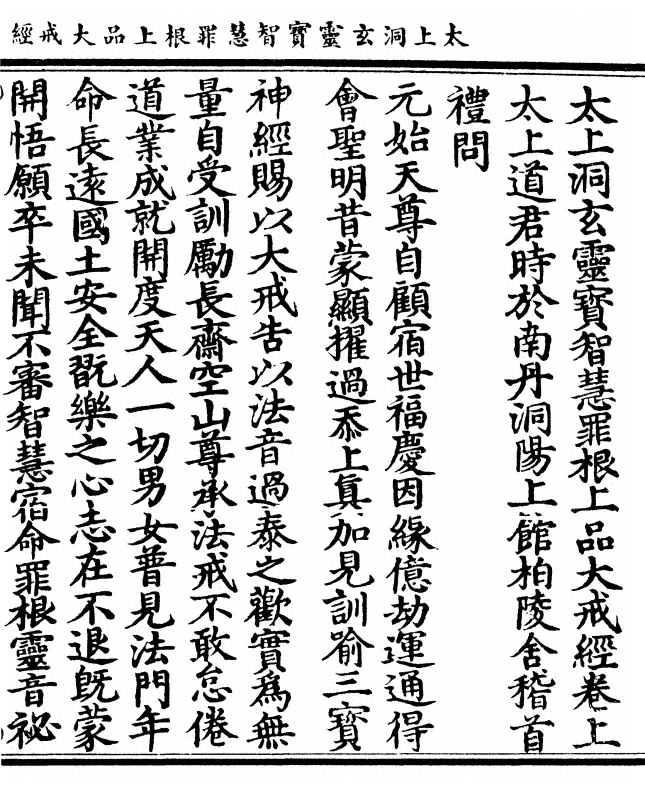 太上洞玄靈寶智慧罪根上品大戒經
太上洞玄靈寶智慧罪根上品大戒經卷上
太上道君時於南丹洞陽上館柏陵舍稽首
禮問
元始天尊自顧宿世福慶因緣億劫運通得
會聖明昔蒙顯擢過忝上眞加見訓喻三寶
神經賜以大戒告以法音過泰之歡實爲無
量自受訓勵長齋空山尊承法戒不敢怠倦
道業成就開度天人一切男女普見法門年
命長遠國土安全翫樂之心志在不退既蒙
開悟願卒未聞不審智慧宿命罪根靈音祕